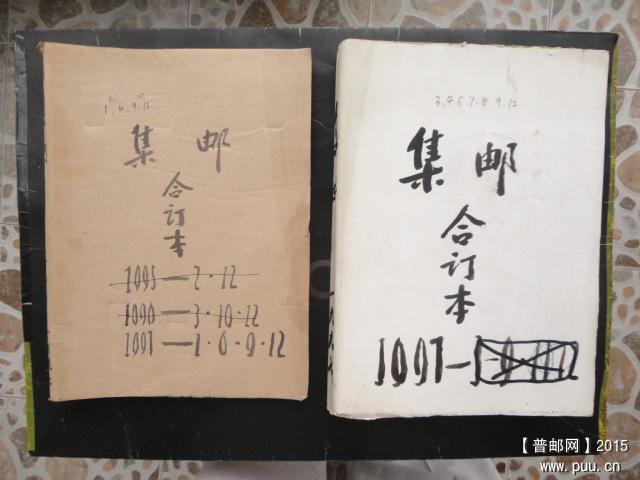 集 邮
合订本
1995—2·12
1996—3·10·12
1997—1·6·9·12
3.4.5.7.8.9.12
集 邮
合订本
1997—1
【普邮网】2015
www.puu.cn